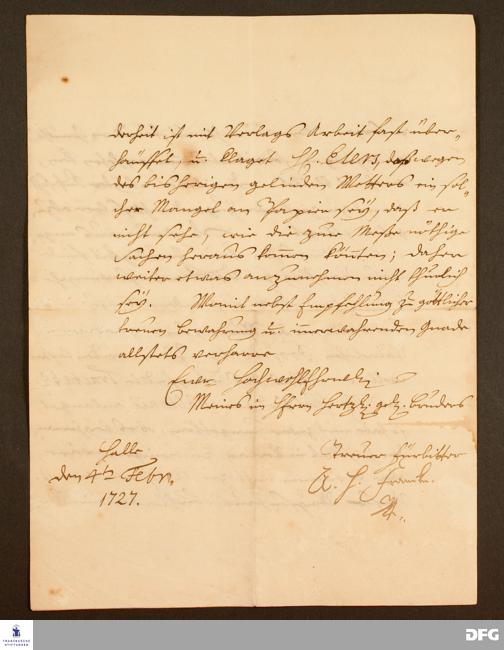 derheit ist mit Verlags Arbeit fast über-
häuffet, u. klaget H. Elers, daß wegen
des bisherigen gelinden Wetters ein sol-
cher Mangel an Papier sey, daß er
nicht sehe, wie die zur Meße nöthige
Sachen heraus kom̅en könten; daher
weiter etwas anzunehmen nicht thunlich
sey. Womit nebst Empfehlung zu göttlicher
treuen bewahrung u. im̅erwährenden Gnade
allstets verharre
Eure
Meines in Herrn
Halle
den 4ten Febr.
1727.
treuer Fürbitter
A. H. Francke.
FRANCKESCHE
STIFTUNGEN
DFG